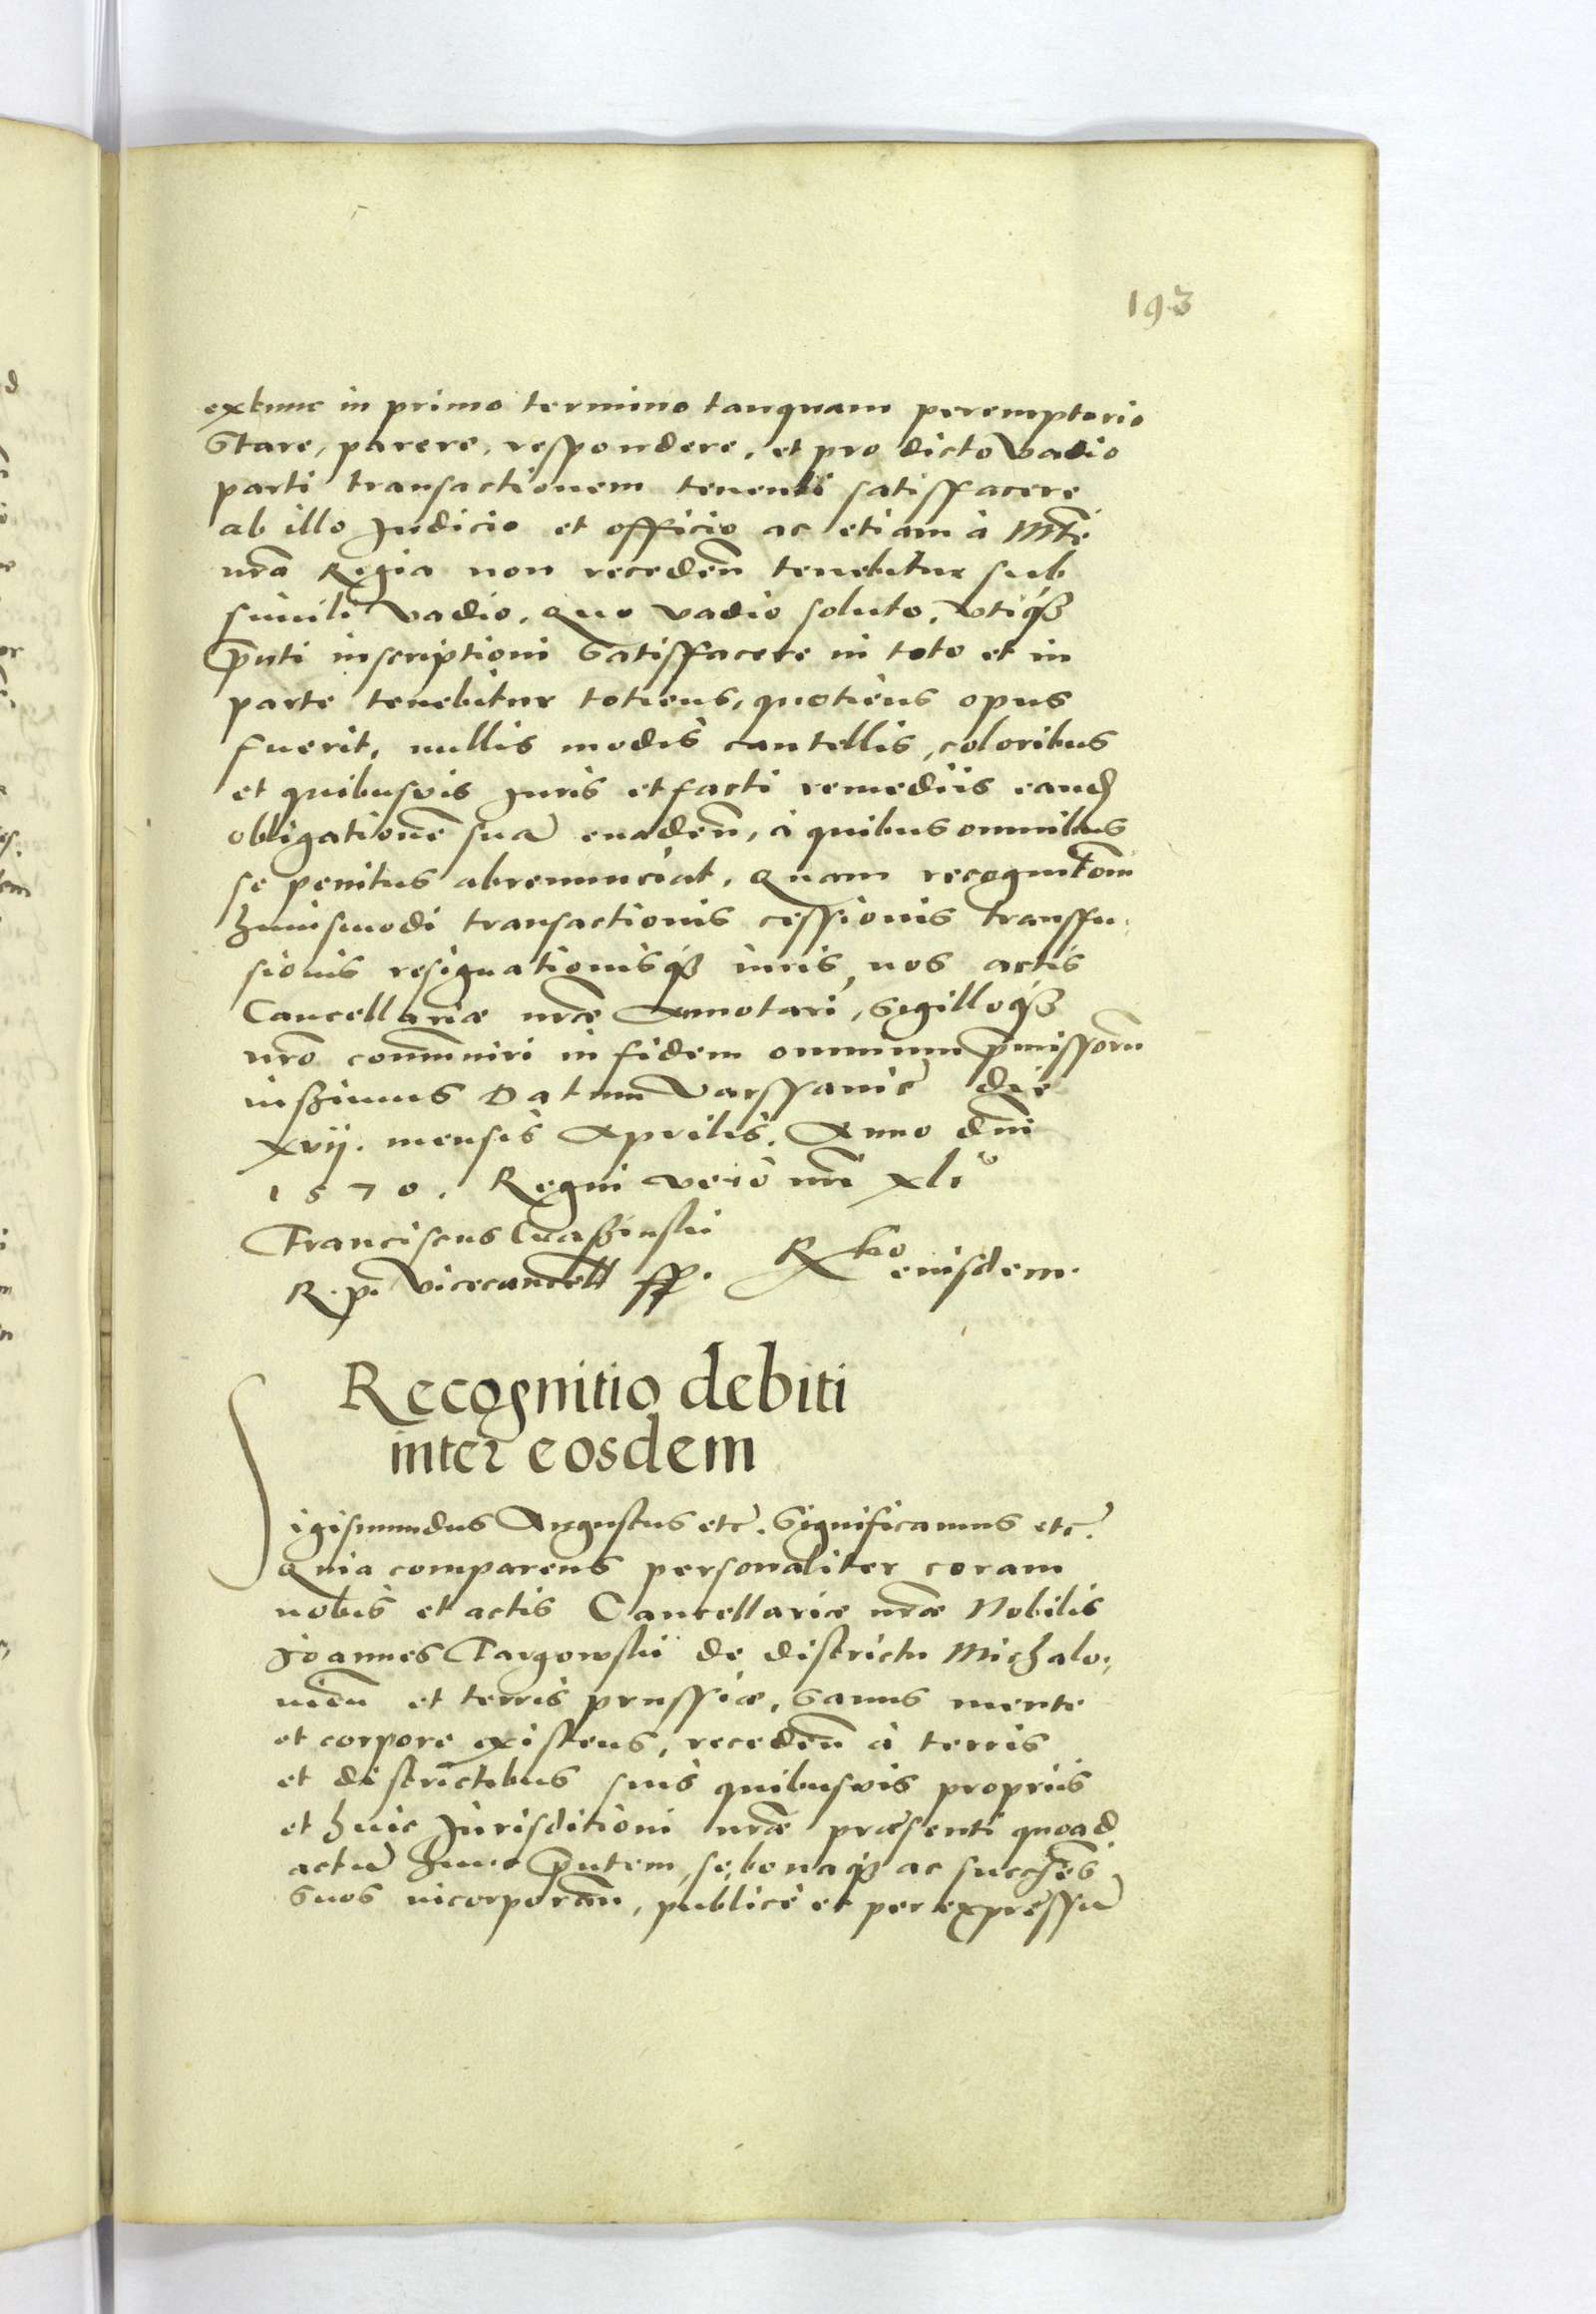 193
extunc in primo termino tanquam peremptorio
Stare, parere, respondere, et pro dicto vadio
parti transactionem tenenti satisfacere
ab illo Judicio et officio ac etiam à Mte
nra Regia non recedeñ tenebitur sub
simili vadio. Quo vadio soluto, vtiqȝ
pñti inscriptioni Satisfacere in toto et in
parte tenebitur totiens, quotiens opus
fuerit, nullis modis cautellis, coloribus
et quibusvis Juris et facti remediis eand
obligationē suā euadeñ, à quibus omnibus
se penitus abrenunciat. Quam recognitom
huiusmodi transactionis cessionis transfu,
sionis resignationisqȝ iuris, nos actis
Cancellariæ nræ Annotari, Sigilloqȝ
nro com̄uniri in fidem omnium p̄missorū
iussimus Datum Varssauie die
xvij. mensis Aprilis. Anno dn̄i
1570. Regni vero nr̄i xli⁰
Franciscus Crassinski
R. p. vicecancell ff. Rtio eiusdem.
Recognitio debiti
inter eosdem
Sigismundus Augustus etc. Significamus etc.
Quia comparens personaliter coram
nobis et actis Cancellariæ nræ Nobilis
Joannes Targowski de districtu Michalo,
uieñ et terris prussiæ, Sanus mente
et corpore existens, recedeñ à terris
et districtibus suis quibusvis propriis
et huic Jurisditioni nræ præsenti quoad
actū hunc p̄ntem, se, bonaqȝ ac succes̄
Suos incorporañ, publicè et per expressū